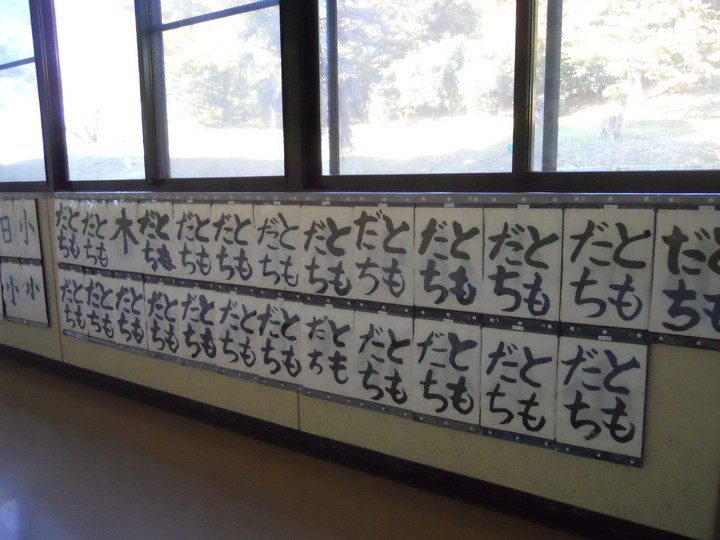 日
小
小
小
とも
だち
とも
だち
木
とも
だち
とも
だち
とも
だち
とも
だち
とも
だち
とも
だち
とも
だち
とも
だち
とも
だち
とも
だち
とも
だち
とも
だち
とも
だち
とも
だち
とも
だち
とも
だち
とも
だち
とも
だち
とも
だち
とも
だち
とも
だち
とも
だち
とも
だち